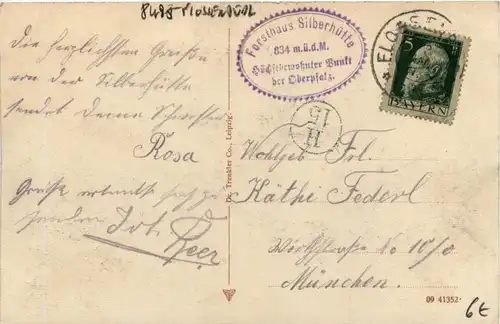 8498 FLOSSENBÜRG
Die herzlichsten Grüße
von der Silberhütte
sendet Deine Schwester
Rosa
Grüße erlaubt sich zu
senden
Forsthaus Silberhütte
834 m.ü.d.M.
Höchstbewohnter Punkt
der Oberpfalz.
FLOSSENB
5
BAYERN
Dr. Trenkler Co., Leipzig.
15
II
Wohlgeb. Frl.
Käthi Federl
No 10/0
München.
09 41352
6€